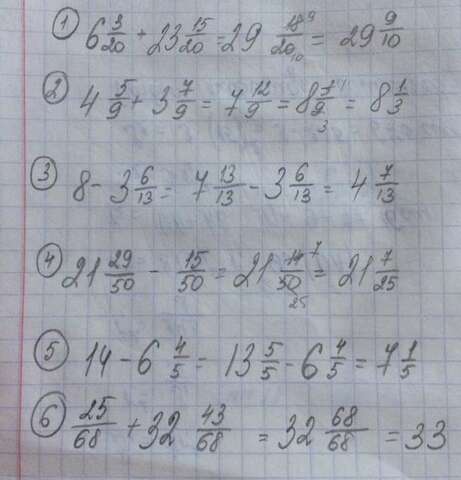 1) 6 3/20 + 23 15/20 = 29 18/20 9 10 = 29 9/10
2) 4 5/9 + 3 7/9 = 7 12/9 = 8 3/9 1 3 = 8 1/3
3) 8 - 3 6/13 = 7 13/13 - 3 6/13 = 4 7/13
4) 21 29/50 - 15/50 = 21 14/50 7 25 = 21 7/25
5) 14 - 6 4/5 = 13 5/5 - 6 4/5 = 7 1/5
6) 25/68 + 32 43/68 = 32 68/68 = 33